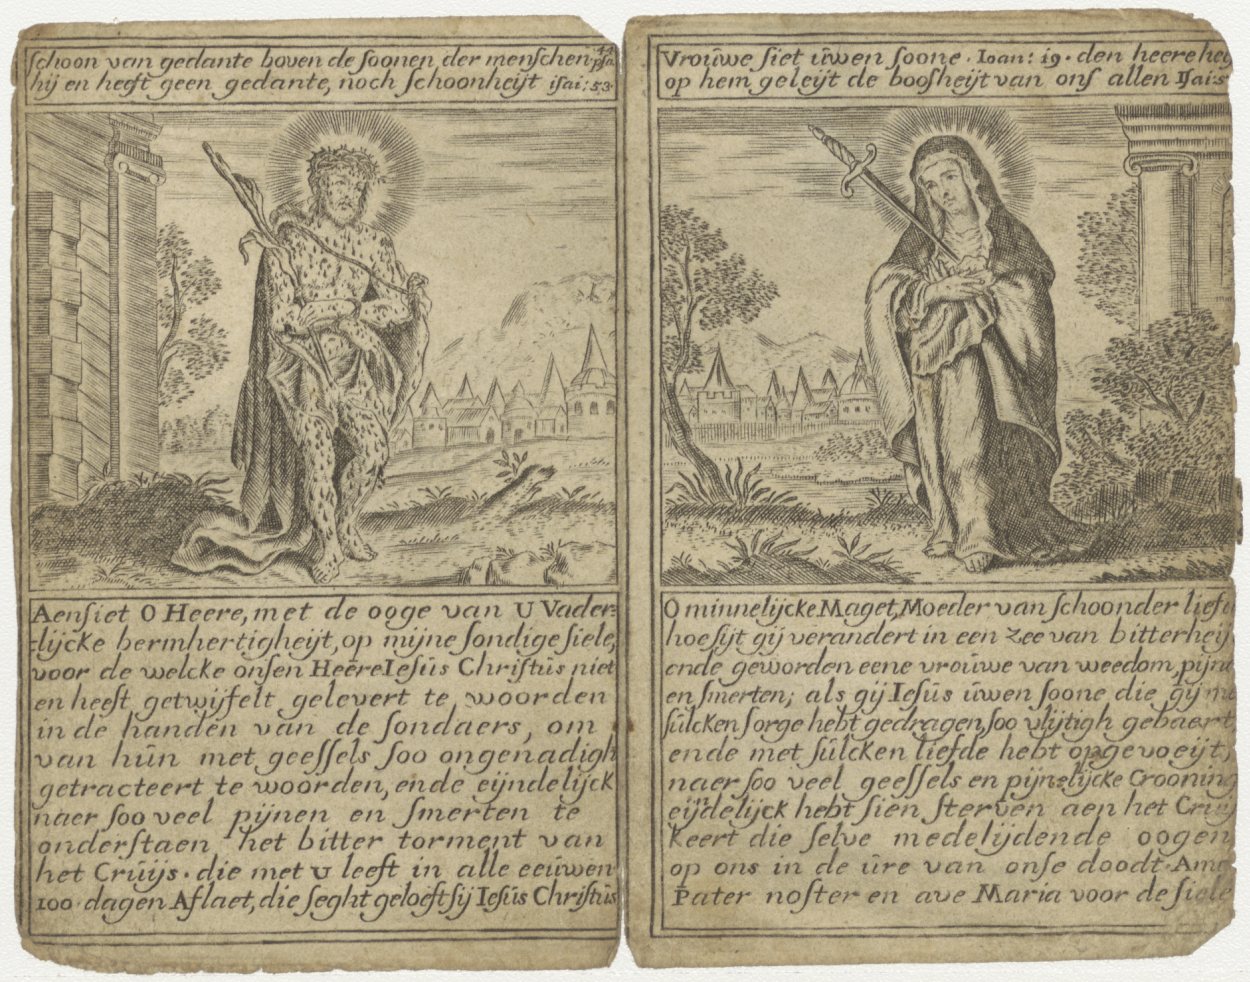 schoon van gedante boven de soonen der menschen psa. 44
hij en heeft geen gedante, noch schoonheijt isai: 53.
Aensiet O Heere, met de ooge van U Vader-
-lijcke bermhertigheijt, op mijne sondige siele,
voor de welcke onsen Heere Iesús Christús niet
en heeft getwijfelt gelevert te woorden
in de handen van de sondaers, om
van hún met geessels soo ongenadigh
getracteert te woorden, ende eijndelijck
naer soo veel pijnen en smerten te
onderstaen het bitter torment van
het Crúijs. die met U leeft in alle eeúwen
100. dagen Aflaet, die seght geloeft sij Iesús Christús
Vroúwe siet úwen soone. Ioan: 19. den heere
op hem geleijt de boosheijt van ons allen Isai:
O minnelijcke Maget, Moeder van schoonder
hoe sijt gij verandert in een Zee van
ende geworden eene vroúwe van weedom,
en smerten; als gij Iesús úwen soone die gij
súlcken sorge hebt gedragen, soo vlijtigh gebaert
ende met súlcken liefde hebt opgevoeijt,
naer soo veel geessels en pijnelijcke Crooning
eijdelijck hebt sien sterven aen het
Keert die selve medelijdende oogen
op ons in de úre van onse doodt.
Pater noster en ave Maria voor de siele